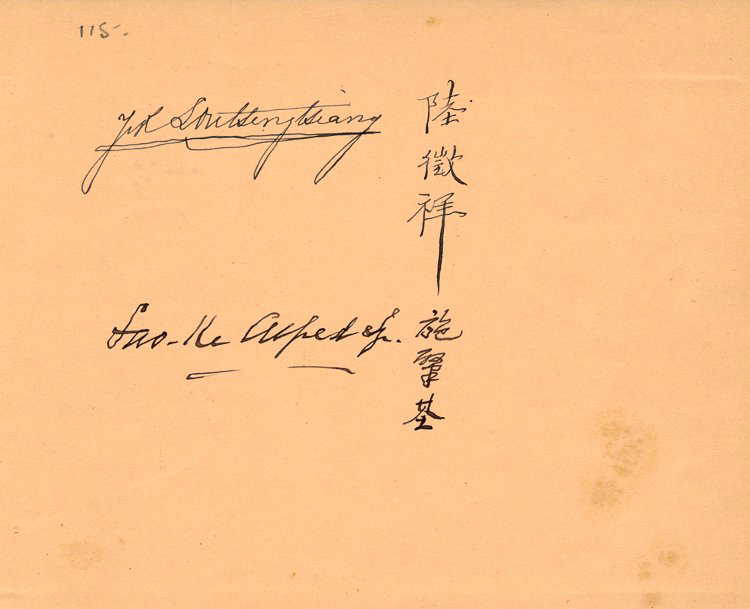 115.
Lou Tsengtsiang
陸徵祥
Sao-Ke Alfred Sze.
施肇基